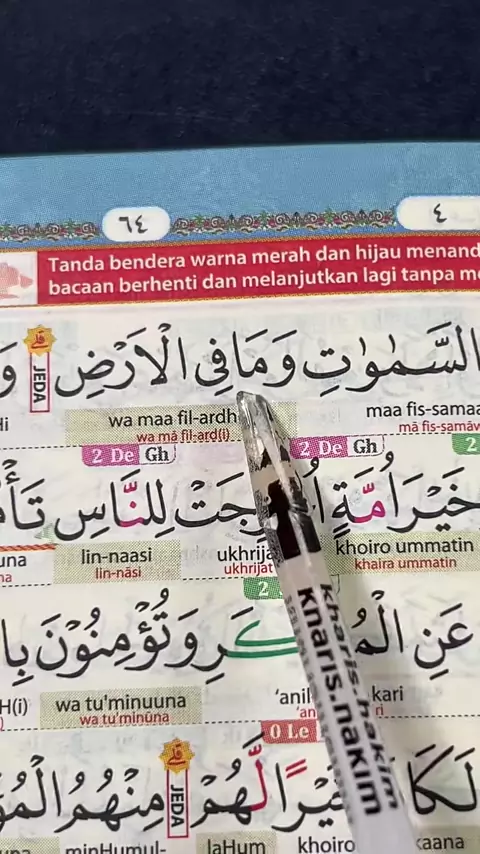 ٤ ٦٤
Tanda bendera warna merah dan hijau
bacaan berhenti dan melanjutkan lagi tanpa
السَّمٰوٰتِ وَمَا فِى الْاَرْضِ JEDA
maa fis-samaa wa maa fil-ardh
mā fis-samāv wa mā fil-arḍ(i)
2 De Gh 2 De Gh 2
خَيْرَ اُمَّةٍ اُخْرِجَتْ لِلنَّاسِ
khoiro ummatin ukhrija lin-naasi
khaira ummatin ukhrijat lin-nāsi
2
عَنِ الْمُ كَرِ وَتُؤْمِنُوْنَ
'anil kari wa tu'minuuna
wa tu'minūna
0 Le
خَيْرًا لَّهُمْ JEDA مِنْهُمُ
kaana khoiro laHum minHumul-
kharis.nakim